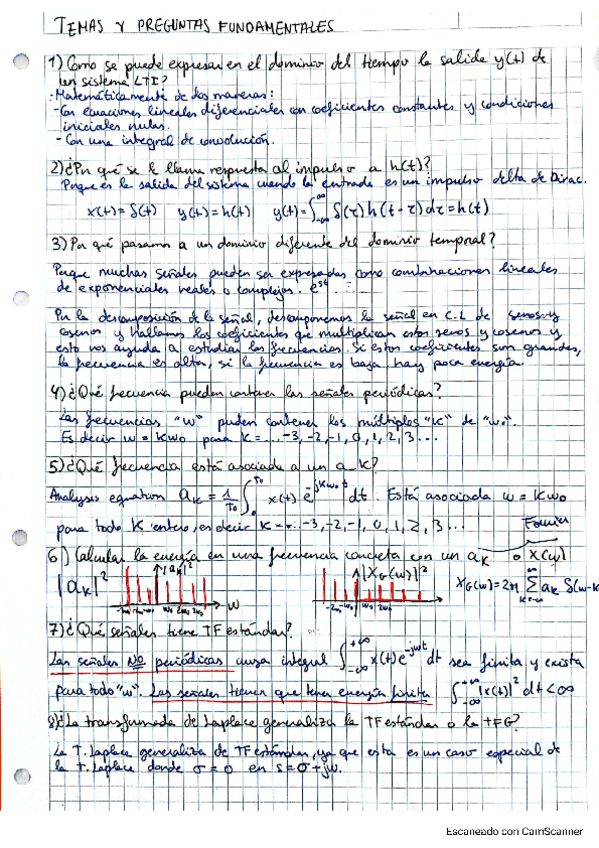 TEMAS Y PREGUNTAS FUNDAMENTALES
1) Como se puede expresar en el dominio del tiempo la salida y(t) de
un sistema LTI?
Matemáticamente de dos maneras:
- Con ecuaciones lineales diferenciales con coeficientes constantes y condiciones
iniciales nulas.
- Con una integral de convolución.
2) ¿Por qué se le llama respuesta al impulso a h(t)?
Porque es la salida del sistema cuando la entrada es un impulso delta de Dirac.
x(t) = δ(t) y(t) = h(t) y(t) = ∫_{-∞}^{∞} δ(τ) h(t-τ) dτ = h(t)
3) Por qué pasamos a un dominio diferente del dominio temporal?
Porque muchas señales pueden ser expresadas como combinaciones lineales
de exponenciales reales o complejos. e^{st}
Por la descomposición de la señal, descomponemos la señal en C.L de senos y
cosenos y hallamos los coeficientes que multiplican estos senos y cosenos y
esto nos ayuda a estudiar las frecuencias. Si estos coeficientes son grandes,
la frecuencia es alta, si la frecuencia es baja, hay poca energía.
4) ¿Qué frecuencia pueden contener las señales periódicas?
Las frecuencias "w" pueden contener los múltiples "K" de "w₀".
Es decir w = Kw₀ para K = ... -3, -2, -1, 0, 1, 2, 3 ...
5) ¿Qué frecuencia está asociada a un a_K?
Analysis equation a_K = 1/T₀ ∫_0^{T₀} x(t) e^{-jKw₀t} dt. Está asociada w = Kw₀
para todo K entero, es decir K = ... -3, -2, -1, 0, 1, 2, 3 ...
Fourier
6) Calcular la energía en una frecuencia concreta con un a_K o X(w)
|a_K|² |a_K|² w |X_G(w)|² X_G(w) = 2π Σ_{K=-∞}^{∞} a_K δ(w-K
7) ¿Qué señales tiene TF estándar?
Las señales NO periódicas cuya integral ∫_{-∞}^{+∞} x(t) e^{-jwt} dt sea finita y exista
para todo "w". Las señales tienen que tener energía finita ∫_{-∞}^{+∞} |x(t)|² dt < ∞
8) ¿La transformada de Laplace generaliza la TF estándar o la TFG?
La T. Laplace generaliza de TF estándar, ya que esta es un caso especial de
la T. Laplace donde σ = 0 en s = σ + jw.
Escaneado con CamScanner